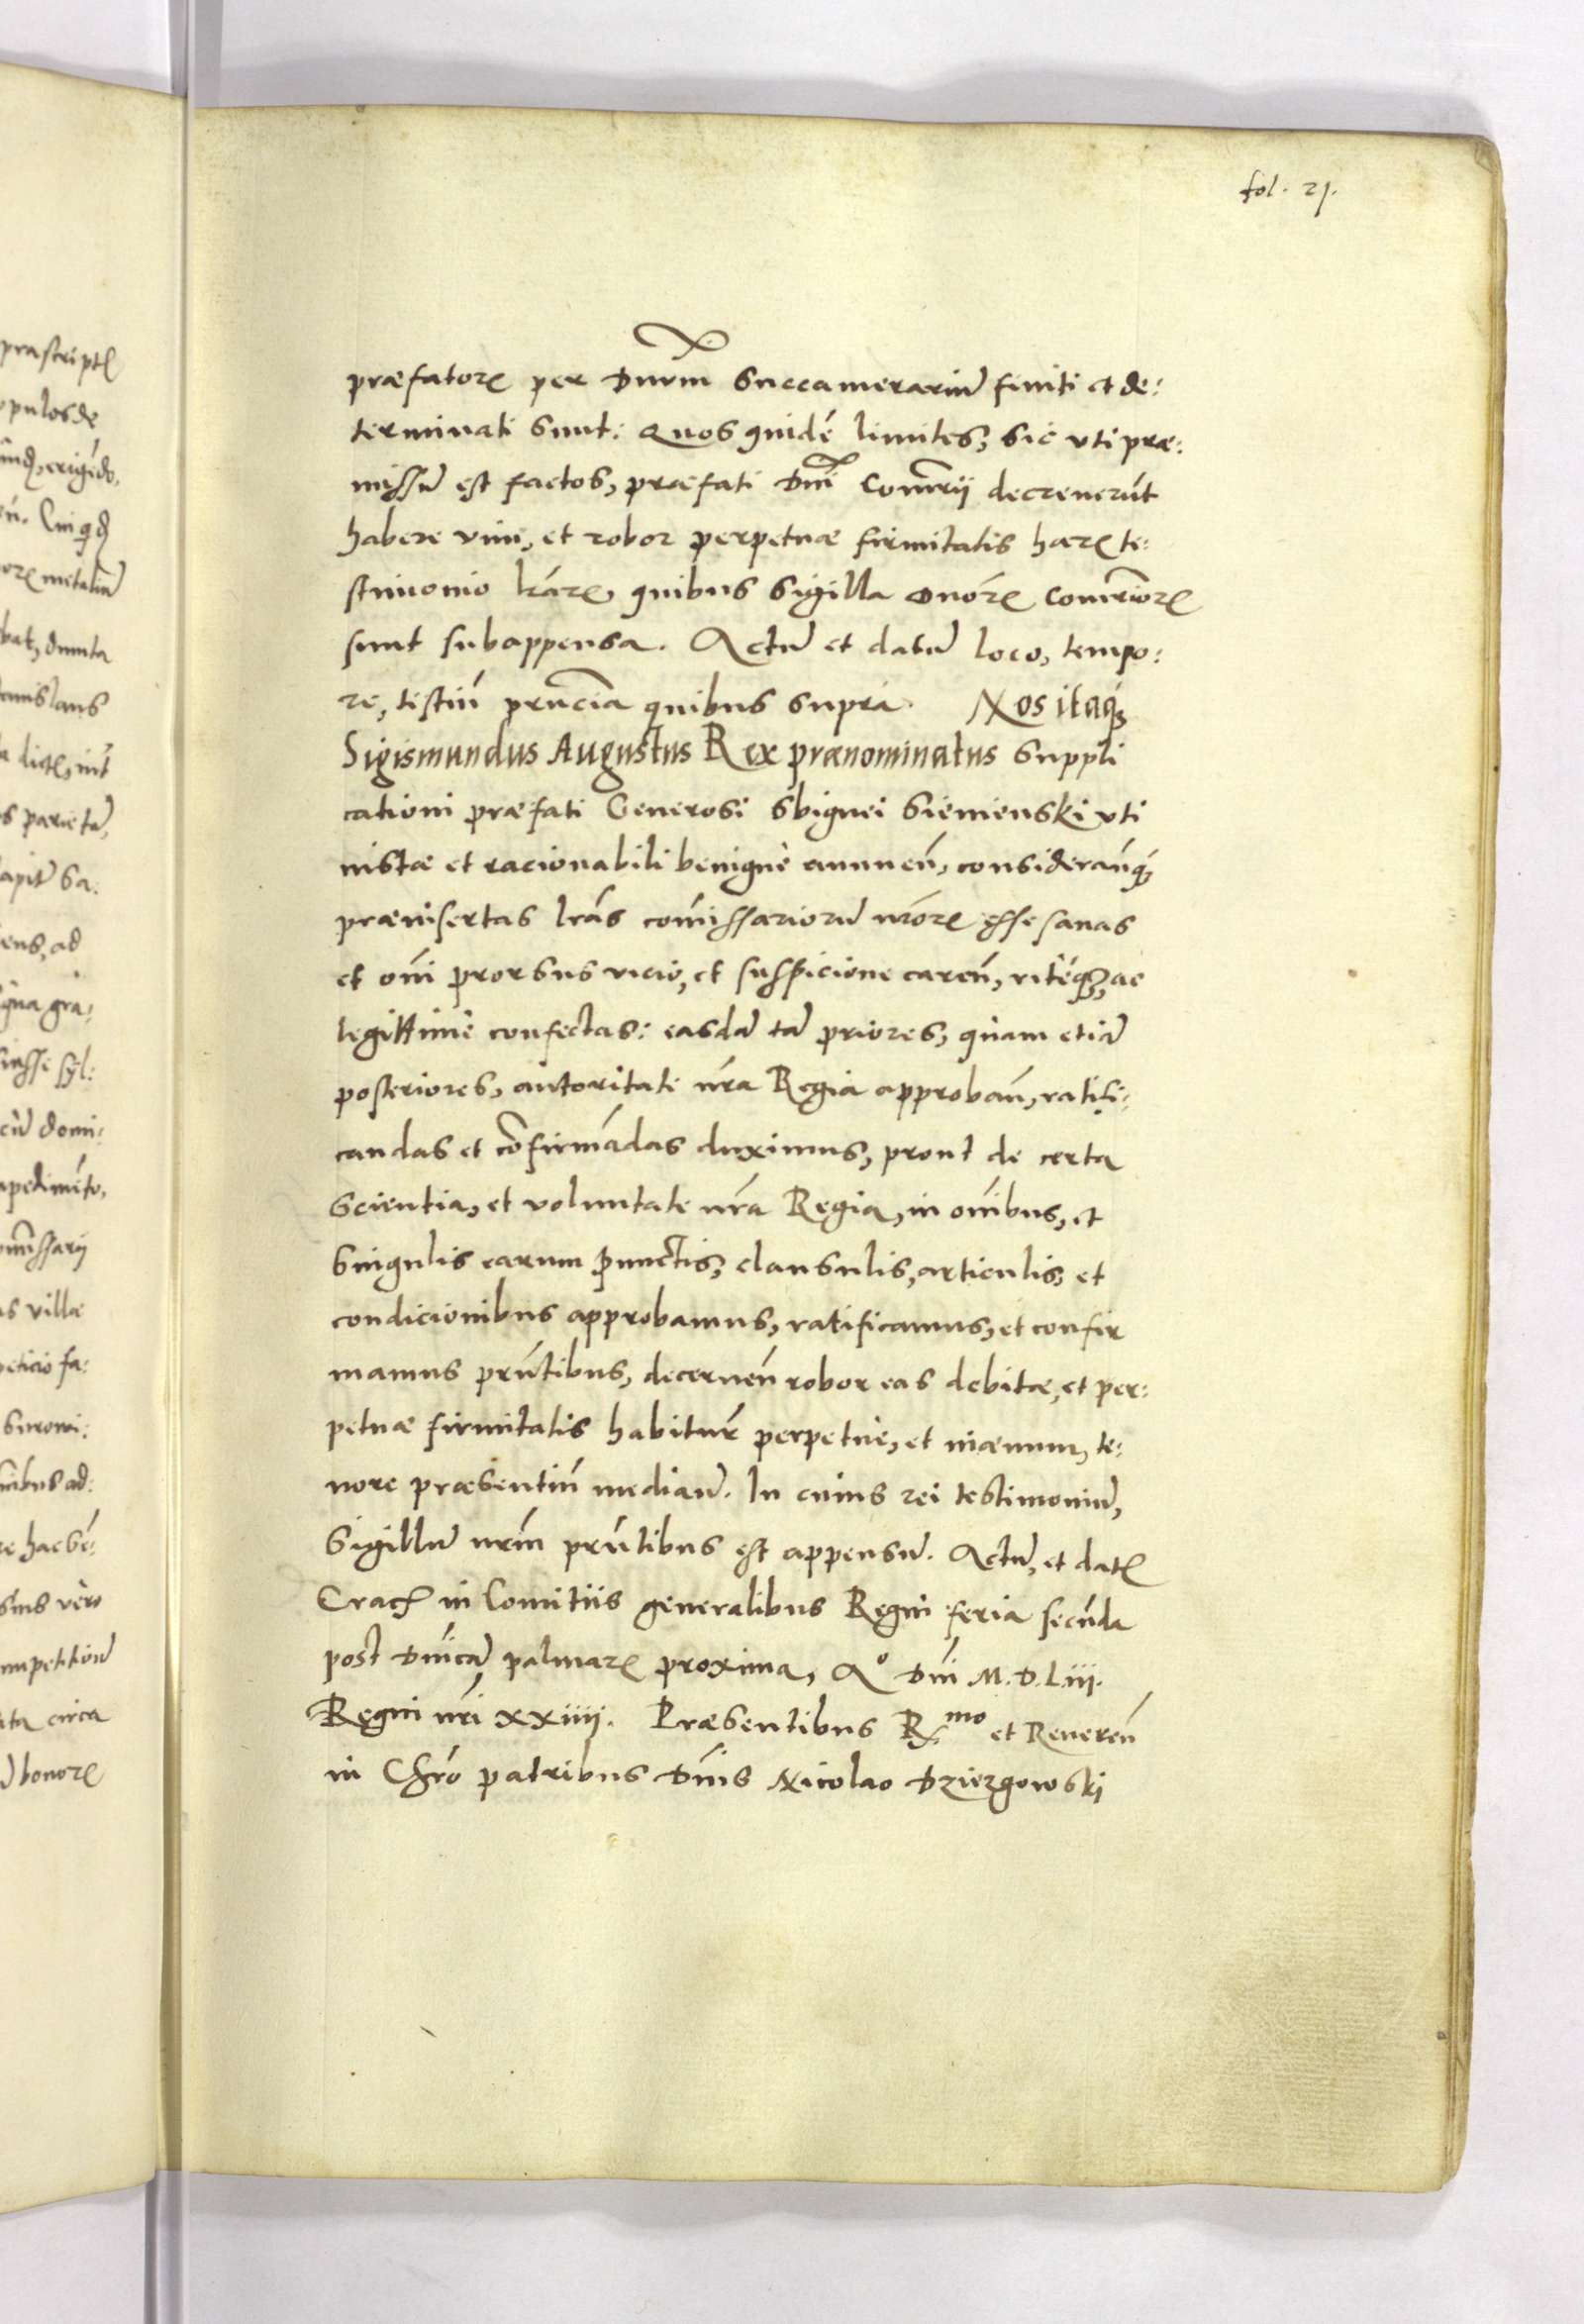 fol. 21.
præfatorꝝ per Dnūm Succamerariū finiti et de:
terminati sunt: Quos quidē limites, sic uti præ:
missū est factos, præfati Dnī Comrīi decreverūt
habere vim, et robor perpetuæ firmitatis harꝝ te:
stimonio lrārꝝ, quibus Sigilla Dnōrꝝ Comrīorꝝ
sunt subappensa. Actū et datū loco, tempo:
re, testiū prncīa quibus supra. Nos itaqꝫ
Sigismundus Augustus Rex prænominatus suppli
cationi præfati Generosi Sbignei Siemienski uti
iustæ et racionabili benignè annueñ, consideranꝗꝫ
præinsertas lrās com̄issariorū nrōrꝝ esse sanas
et om̄i prorsus vicio, et suspicione careñ, ritèqꝫ, ac
legittimè confectas: easdā tā priores, quam etiā
posteriores, autoritate nrā Regia approban̄, ratifi:
candas et cōfirmādas duximus, prout de certa
scientia, et voluntate nrā Regia, in om̄ibus, et
singulis earum punctis, clausulis, articulis, et
condicionibus approbamus, ratificamus, et confir
mamus prn̄tibus, decerneñ robor eas debitæ, et per:
petuæ firmitatis habitur̄ perpetuè, et in ævum, te:
nore præsentiū median̄. In cuius rei testimoniū,
Sigillū nrm̄ prn̄tibus est appensū. Actū, et datꝭ
Cracꝭ in Comitiis generalibus Regni feria secūda
post Dnicā palmarꝝ proxima, Aº Dnī M.D.Liii.
Regni nrī XXiiii. Præsentibus R.mo et Revereñ
in Chrō patribus Dnīs Nicolao Dziezgowski